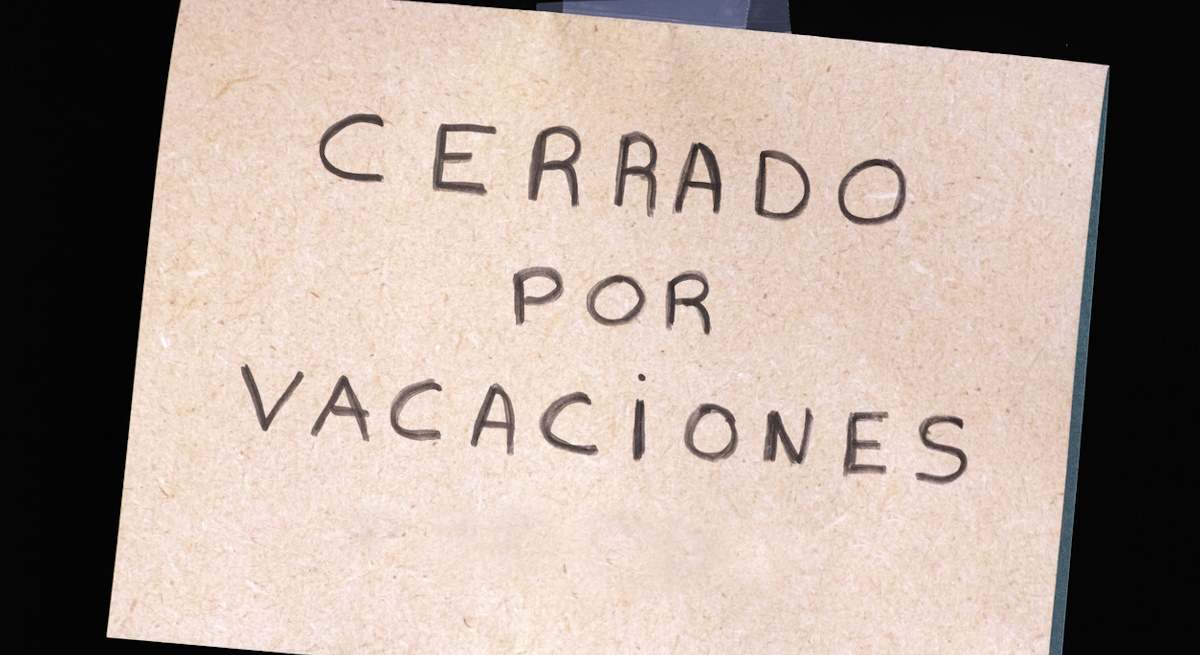 CERRADO
POR
VACACiONES